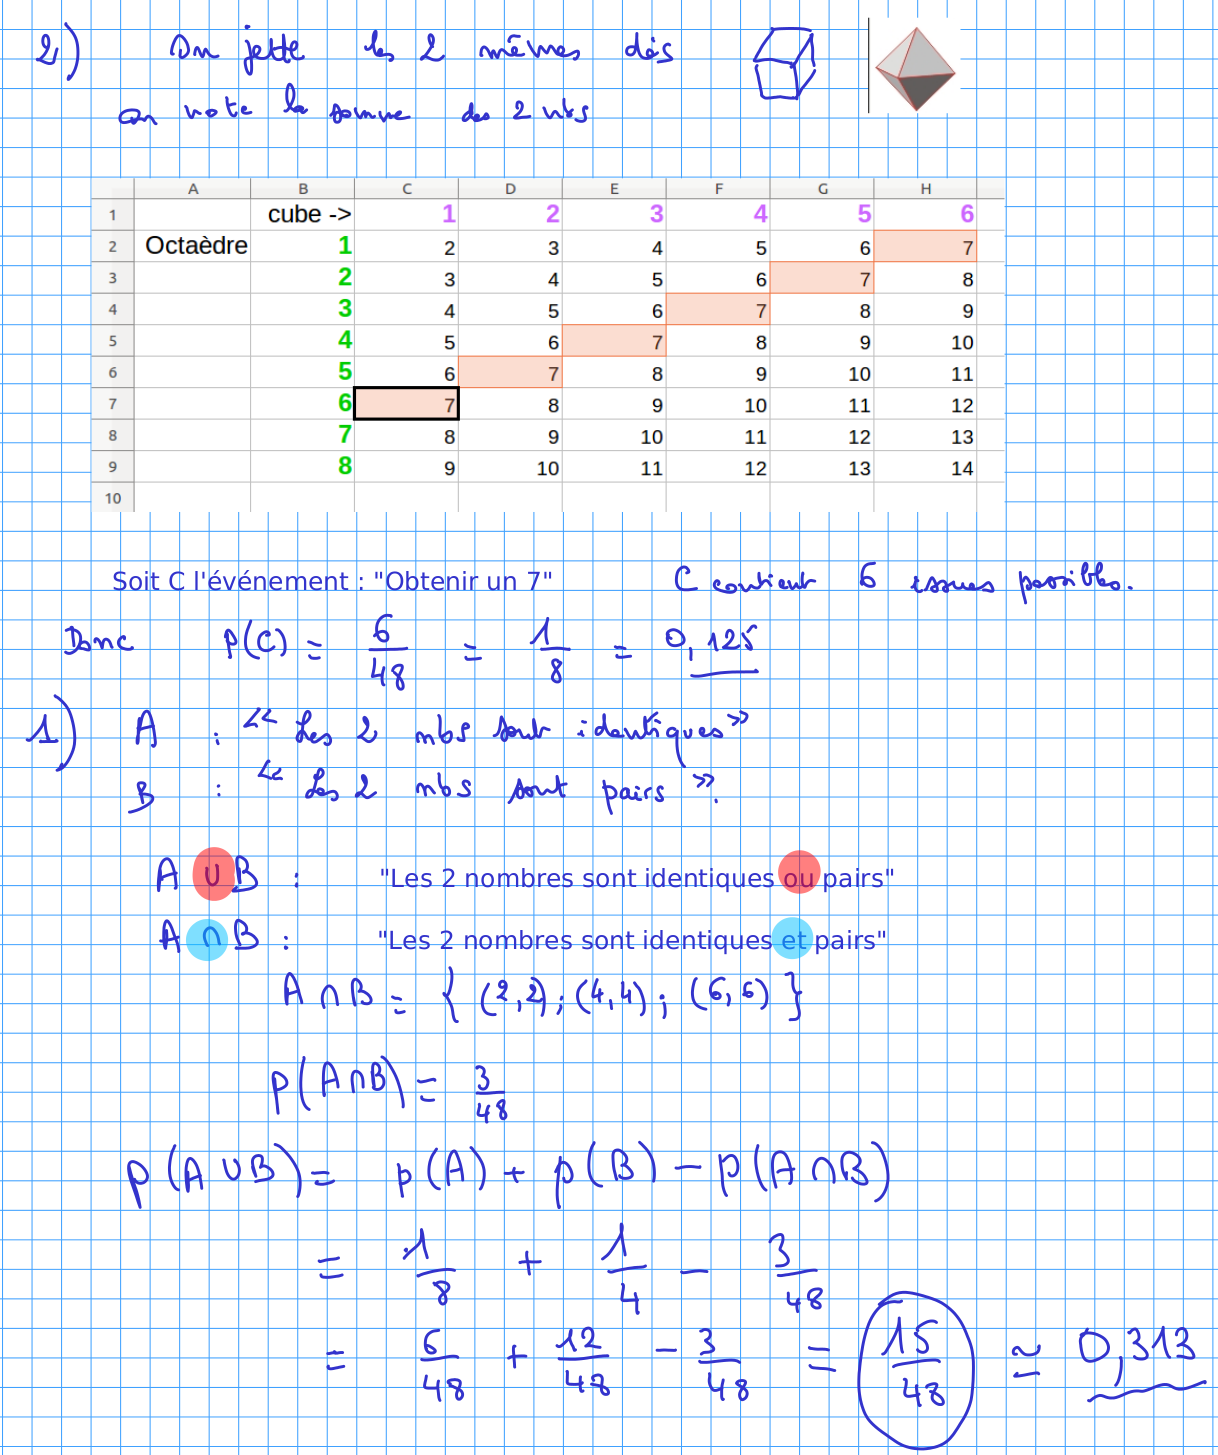 2) On jette les 2 mêmes dés
on note la somme des 2 nbs
A B C D E F G H
1 cube -> 1 2 3 4 5 6
2 Octaèdre 1 2 3 4 5 6 7
3 2 3 4 5 6 7 8
4 3 4 5 6 7 8 9
5 4 5 6 7 8 9 10
6 5 6 7 8 9 10 11
7 6 7 8 9 10 11 12
8 7 8 9 10 11 12 13
9 8 9 10 11 12 13 14
10
Soit C l'événement : "Obtenir un 7" C contient 6 issues possibles.
Donc p(C) = 6/48 = 1/8 = 0,125
1) A : « Les 2 nbs sont identiques »
B : « Les 2 nbs sont pairs ».
A ∪ B : "Les 2 nombres sont identiques ou pairs"
A ∩ B : "Les 2 nombres sont identiques et pairs"
A ∩ B = { (2,2) ; (4,4) ; (6,6) }
p(A ∩ B) = 3/48
p(A ∪ B) = p(A) + p(B) - p(A ∩ B)
= 1/8 + 1/4 - 3/48
= 6/48 + 12/48 - 3/48 = 15/48 ≃ 0,313